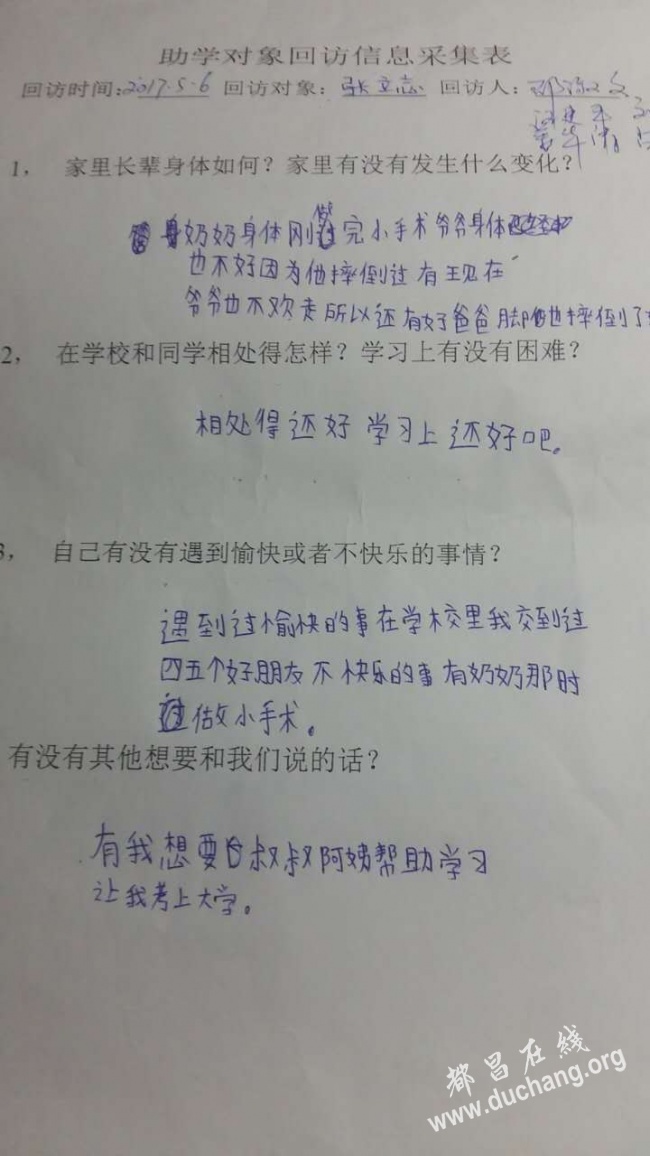 助学对象回访信息采集表
回访时间:2017.5.6 回访对象: 张立志 回访人:
1, 家里长辈身体如何?家里有没有发生什么变化?
奶奶身体刚做完小手术爷爷身体
也不好因为他摔倒过有现在
爷爷也不欢走所以还有好爸爸脚也摔倒了
2, 在学校和同学相处得怎样?学习上有没有困难?
相处得还好学习上还好吧。
3, 自己有没有遇到愉快或者不快乐的事情?
遇到过愉快的事在学校里我交到过
四五个好朋友不快乐的事有奶奶那时
做小手术。
有没有其他想要和我们说的话?
有我想要叔叔阿姨帮助学习
让我考上大学。
都昌在线
www.duchang.org